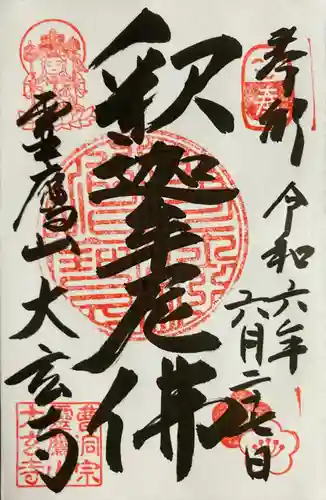 奉拝
令和六年
六月二十七日
釈迦牟尼佛
霊鷹山大玄寺
曹洞宗
霊鷹山
大玄寺